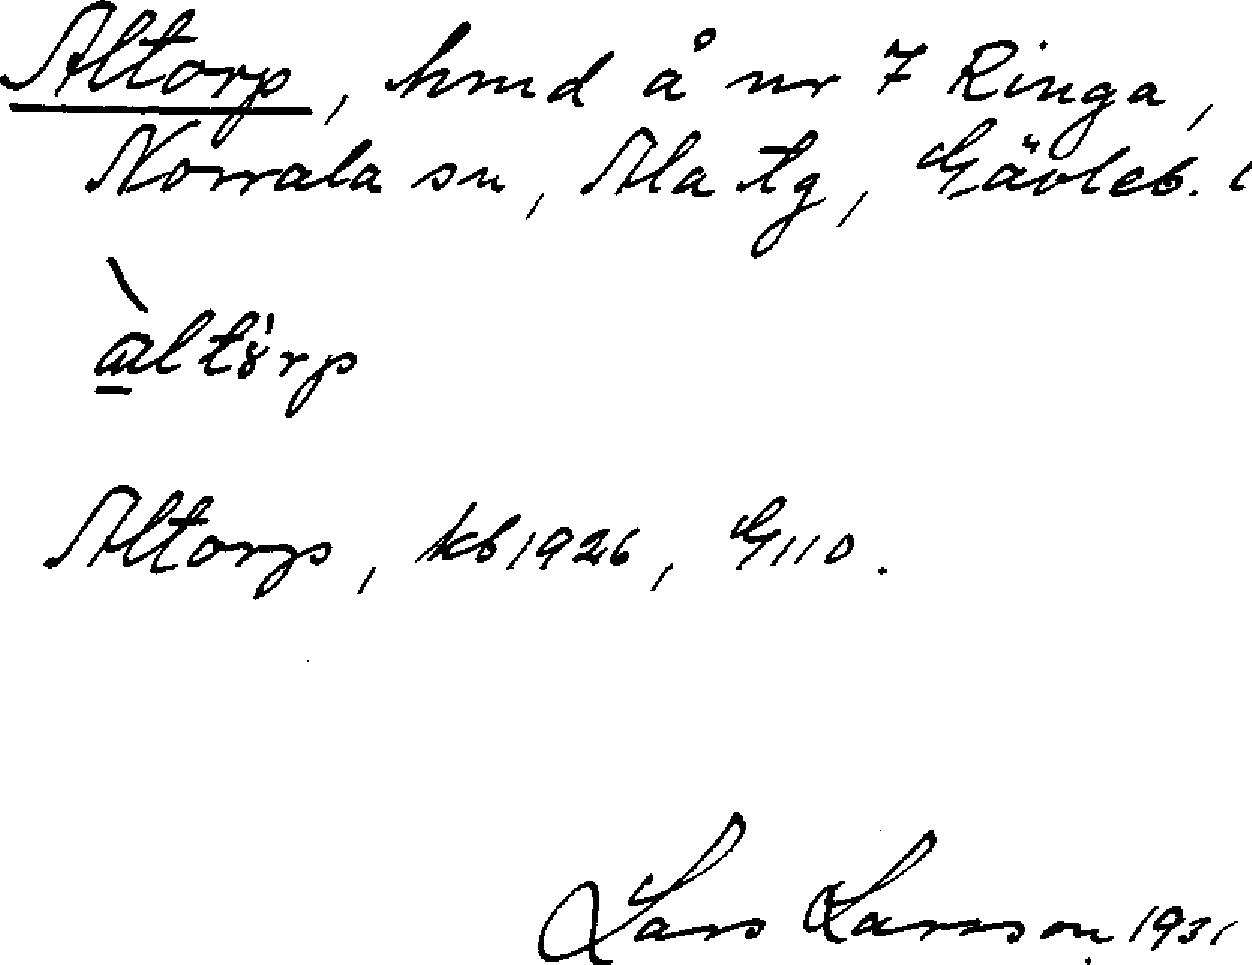 Altorp, hmd å nr 7 Ringa,
Norrala sn, Ala tg, Gävleb. l
àltȣ̍rp
Altorp, kb 1926, GIIO.
Lars Larsson 1931